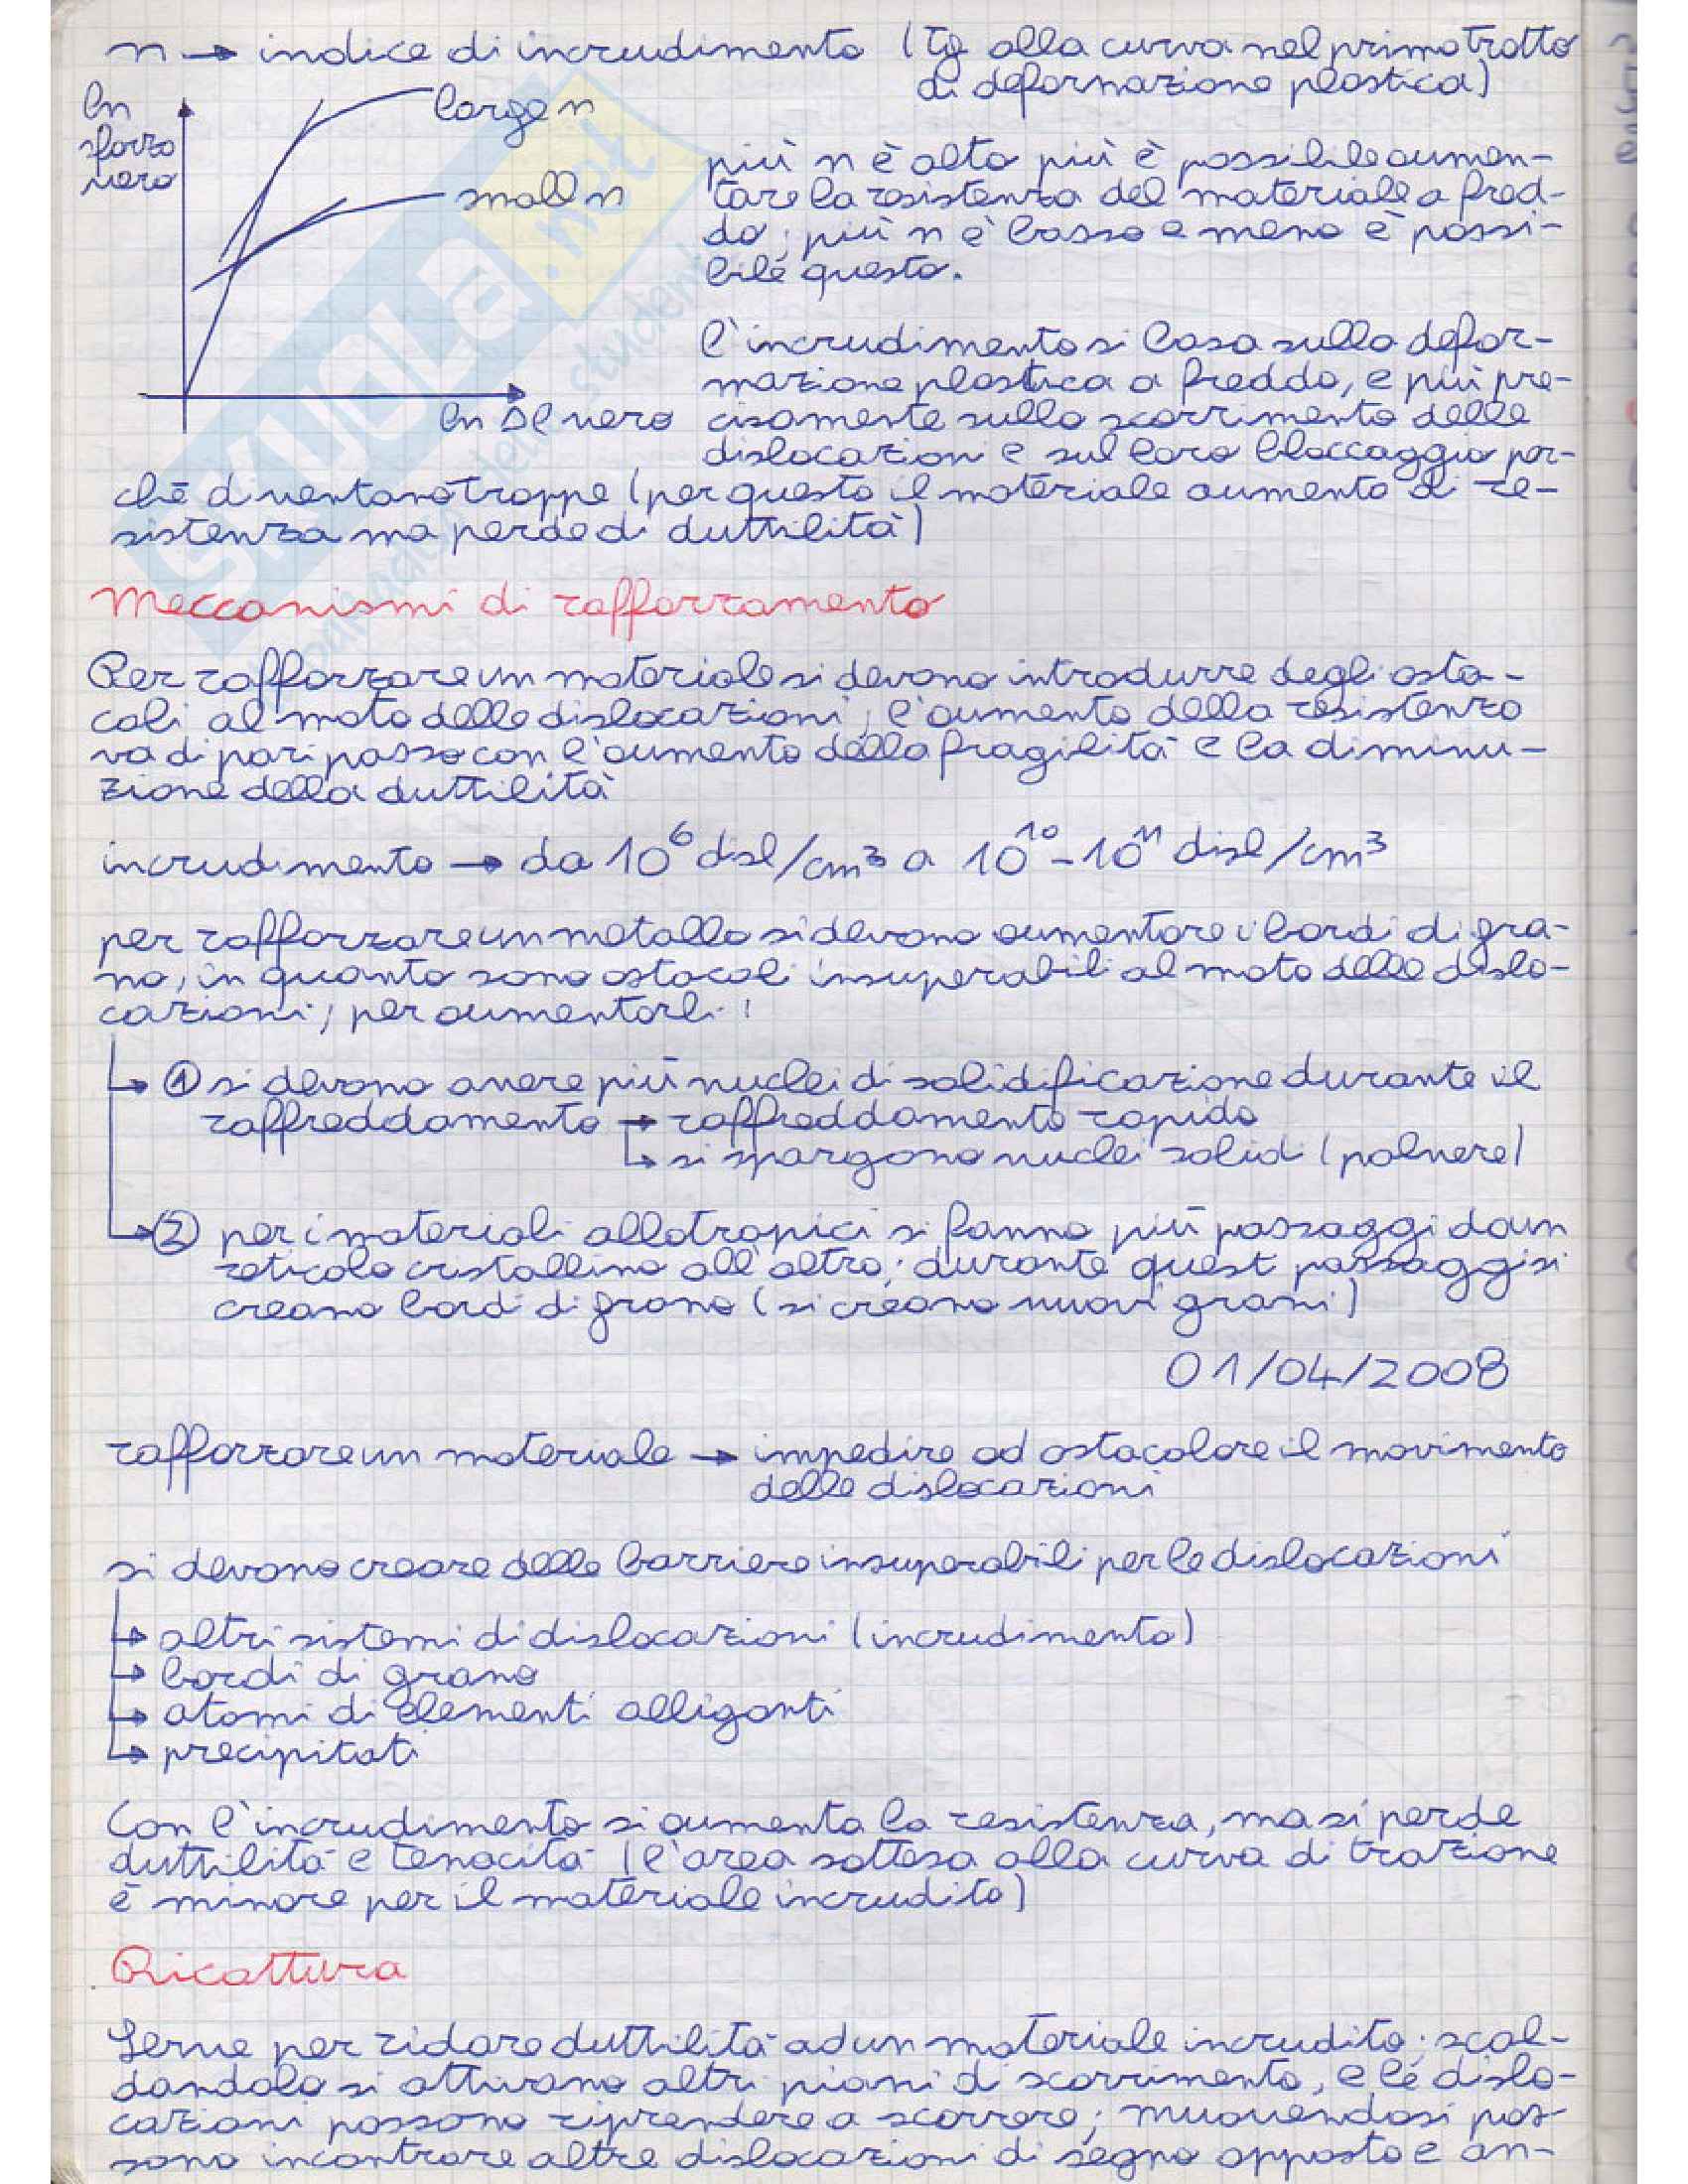 n → indice di incrudimento (tg alla curva nel primo tratto
di deformazione plastica)
ln
sforzo
vero
large n
small n
ln Δl vero
più n è alto più è possibile aumen-
tare la resistenza del materiale a fred-
do; più n è basso e meno è possi-
bile questo.
l'incrudimento si basa sulla defor-
mazione plastica a freddo, e più pre-
cisamente sullo scorrimento delle
dislocazioni e sul loro bloccaggio per-
ché diventano troppe (per questo il materiale aumenta di re-
sistenza ma perde di duttilità)
Meccanismi di rafforzamento
Per rafforzare un materiale si devono introdurre degli osta-
coli al moto delle dislocazioni; l'aumento della resistenza
va di pari passo con l'aumento della fragilità e la diminu-
zione della duttilità
incrudimento → da 10⁶ disl/cm³ a 10¹⁰-10¹¹ disl/cm³
per rafforzare un metallo si devono aumentare i bordi di gra-
no, in quanto sono ostacoli insuperabili al moto delle dislo-
cazioni; per aumentarli:
→ ① si devono avere più nuclei di solidificazione durante il
raffreddamento → raffreddamento rapido
↳ si spargono nuclei solidi (polvere)
→ ② per i materiali allotropici si fanno più passaggi da un
reticolo cristallino all'altro; durante questi passaggi si
creano bordi di grano (si creano nuovi grani)
01/04/2008
rafforzare un materiale → impedire od ostacolare il movimento
delle dislocazioni
si devono creare delle barriere insuperabili per le dislocazioni
→ altri sistemi di dislocazioni (incrudimento)
→ bordi di grano
→ atomi di elementi alliganti
→ precipitati
Con l'incrudimento si aumenta la resistenza, ma si perde
duttilità e tenacità (l'area sottesa alla curva di trazione
è minore per il materiale incrudito)
Ricottura
Serve per ridare duttilità ad un materiale incrudito; scal-
dandolo si attivano altri piani di scorrimento, e le dislo-
cazioni possono riprendere a scorrere; muovendosi pos-
sono incontrare altre dislocazioni di segno opposto e an-
SKUOLA.net